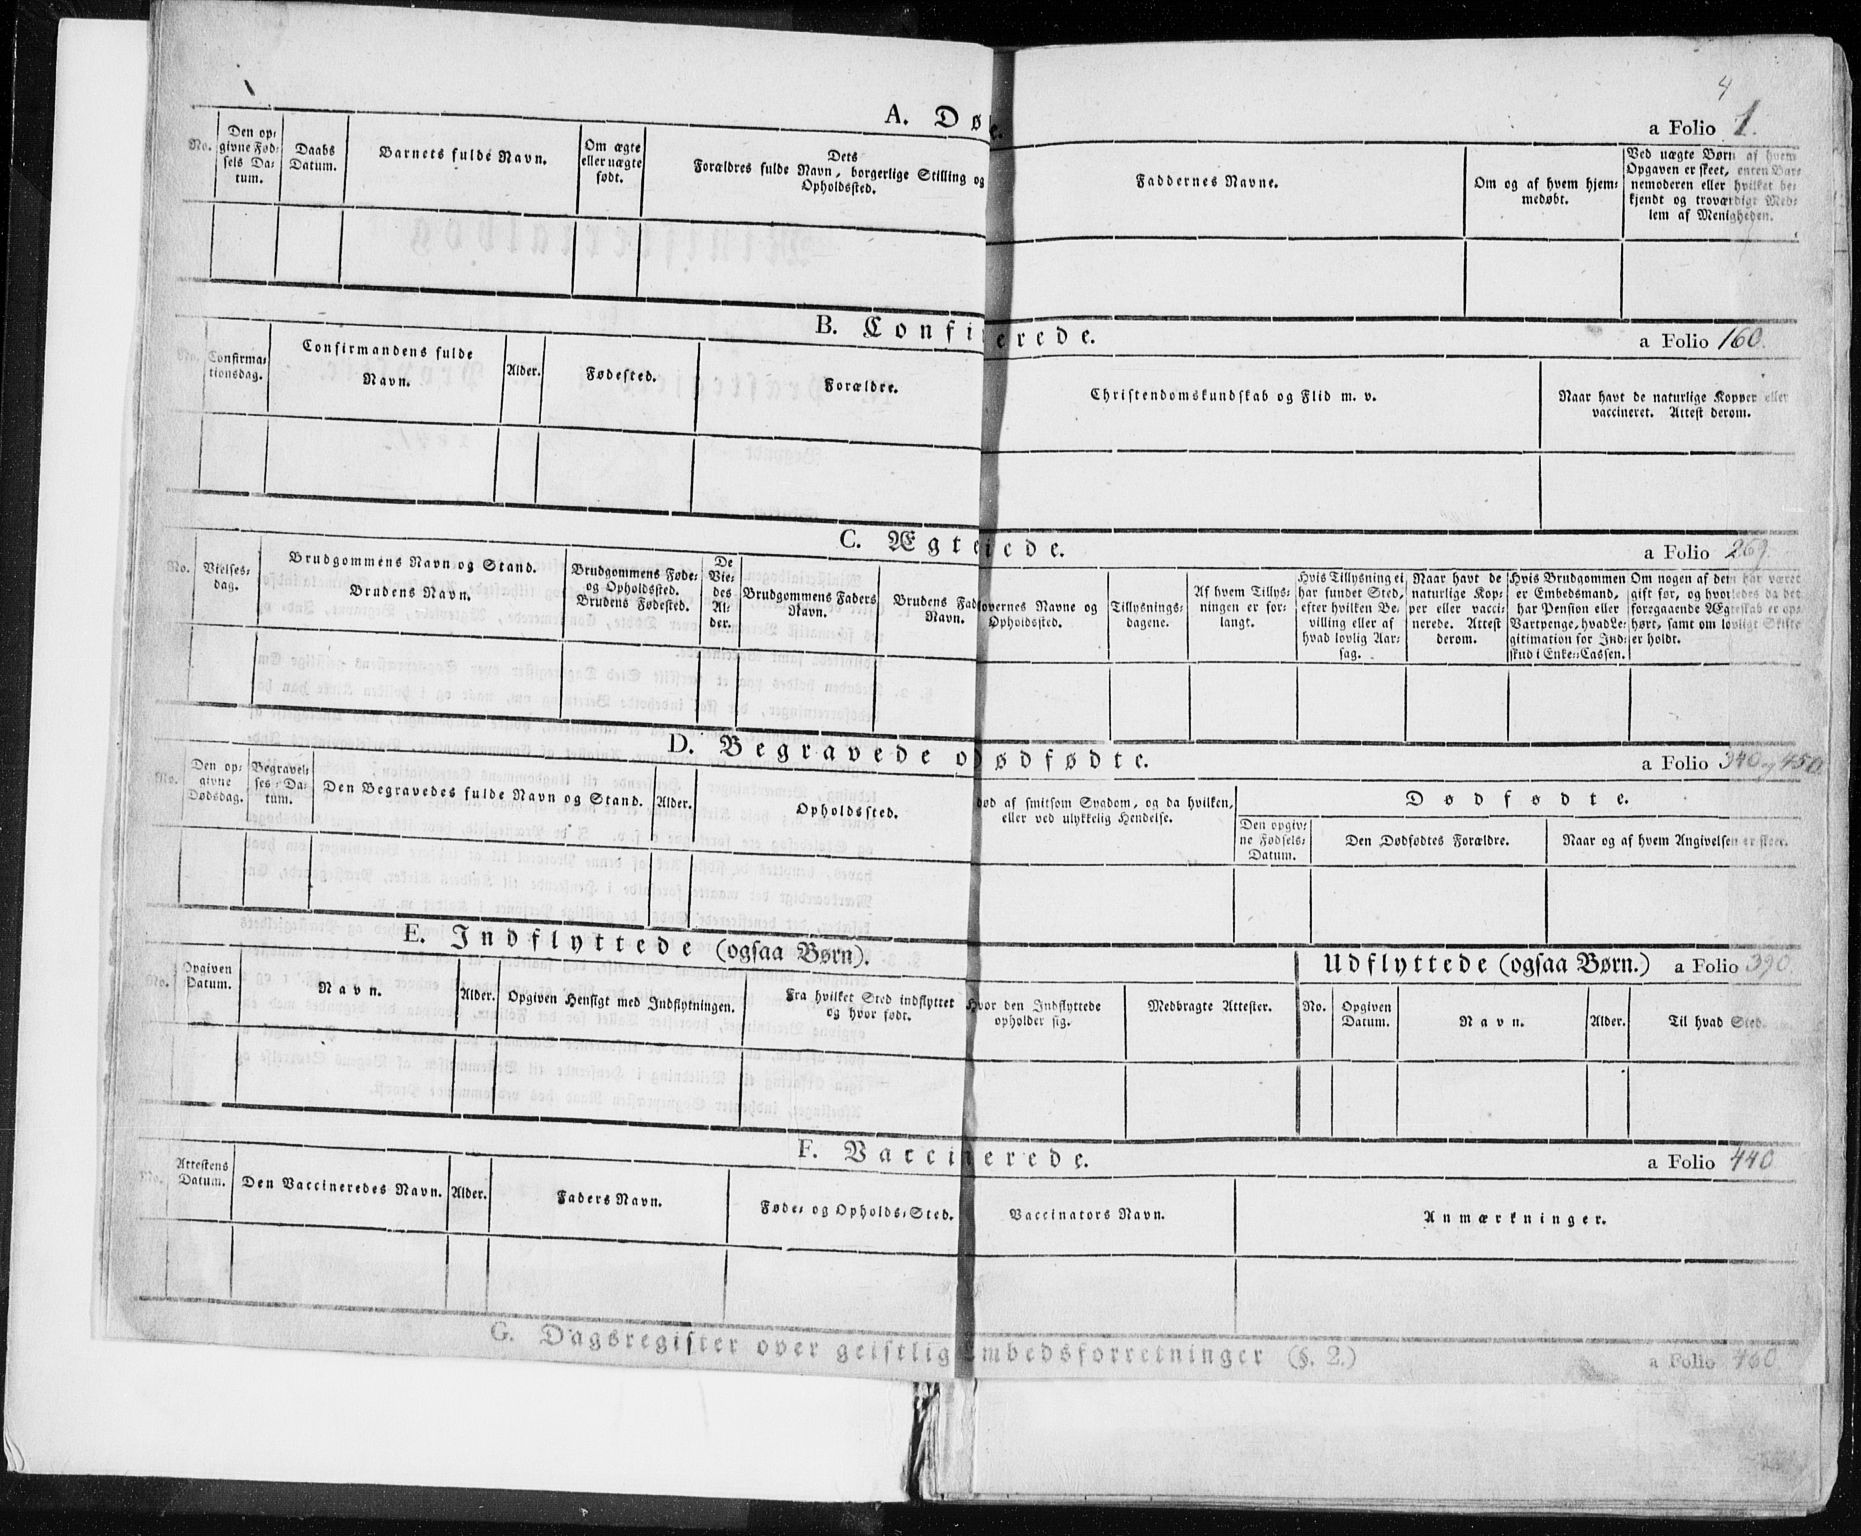 4
A. Dø e.
a Folio 1.
No.
Den op-
givne Fød-
sels Da-
tum.
Daabs
Datum.
Barnets fulde Navn.
Om ægte
eller uægte
født.
Dets
Forældres fulde Navn, borgerlige Stilling og
Opholdssted.
Faddernes Navne.
Om og af hvem hjem-
medøbt.
Ved uægte Børn af hvem
Opgaven er skeet, enten Bar-
nemoderen eller hvilket be-
kjendt og troværdigt Med-
lem af Menigheden.
B. Confi erede.
a Folio 160.
No.
Confirma-
tionsdag.
Confirmandens fulde
Navn.
Alder.
Fødested.
Forældre.
Christendomskundskab og Flid m. v.
Naar havt de naturlige Kopper eller
vaccineret. Attest derom.
C. Ægte iede.
a Folio 269.
No.
Vielses-
dag.
Brudgommens Navn og Stand.
Brudens Navn.
Brudgommens Føde-
og Opholdssted.
Brudens Fødested.
De
Vie-
des
Al-
der.
Brudgommens Faders
Navn.
Brudens Fad
Navn.
lovernes Navne og
Opholdssted.
Tillysnings-
dagene.
Af hvem Tillys-
ningen er for-
langt.
Hvis Tillysning ei
har fundet Sted,
efter hvilken Be-
villing eller af
hvad lovlig Aar-
sag.
Naar havt de
naturlige Kop-
per eller vacci-
nerede. Attest
derom.
Hvis Brudgommen
er Embedsmand,
har Pension eller
Vartpenge, hvad Le-
gitimation for Ind-
skud i Enke-Cassen.
Om nogen af dem har været
gift før, og hvorledes da det
foregaaende Ægteskab er op-
hørt, samt om lovligt Skifte
er holdt.
D. Begravede o Dødfødte.
a Folio 340 og 450.
No.
Den op-
givne
Dødsdag.
Begravel-
ses-Da-
tum.
Den Begravedes fulde Navn og Stand.
Alder.
Opholdssted.
død af smitsom Sygdom, og da hvilken,
eller ved ulykkelig Hendelse.
Dødfødte.
Den opgiv-
ne Fødsels-
Datum.
Den Dødfødtes Forældre.
Naar og af hvem Angivelsen er skeet.
E. Indflyttede (ogsaa Børn).
Udflyttede (ogsaa Børn.) a Folio 390.
No.
Opgiven
Datum.
Navn.
Alder.
Opgiven Hensigt med Indflytningen.
Fra hvilket Sted indflyttet
og hvor født.
Hvor den Indflyttede
opholder sig.
Medbragte Attester.
No.
Opgiven
Datum.
Navn.
Alder.
Til hvad Sted.
F. Vaccinerede.
a Folio 440
No.
Attestens
Datum.
Den Vaccineredes Navn.
Alder.
Faders Navn.
Føde- og Opholds-Sted.
Vaccinators Navn.
Anmærkninger.
G. Dagsregister over geistlig Embedsforretninger (§. 2.)
a Folio 460.